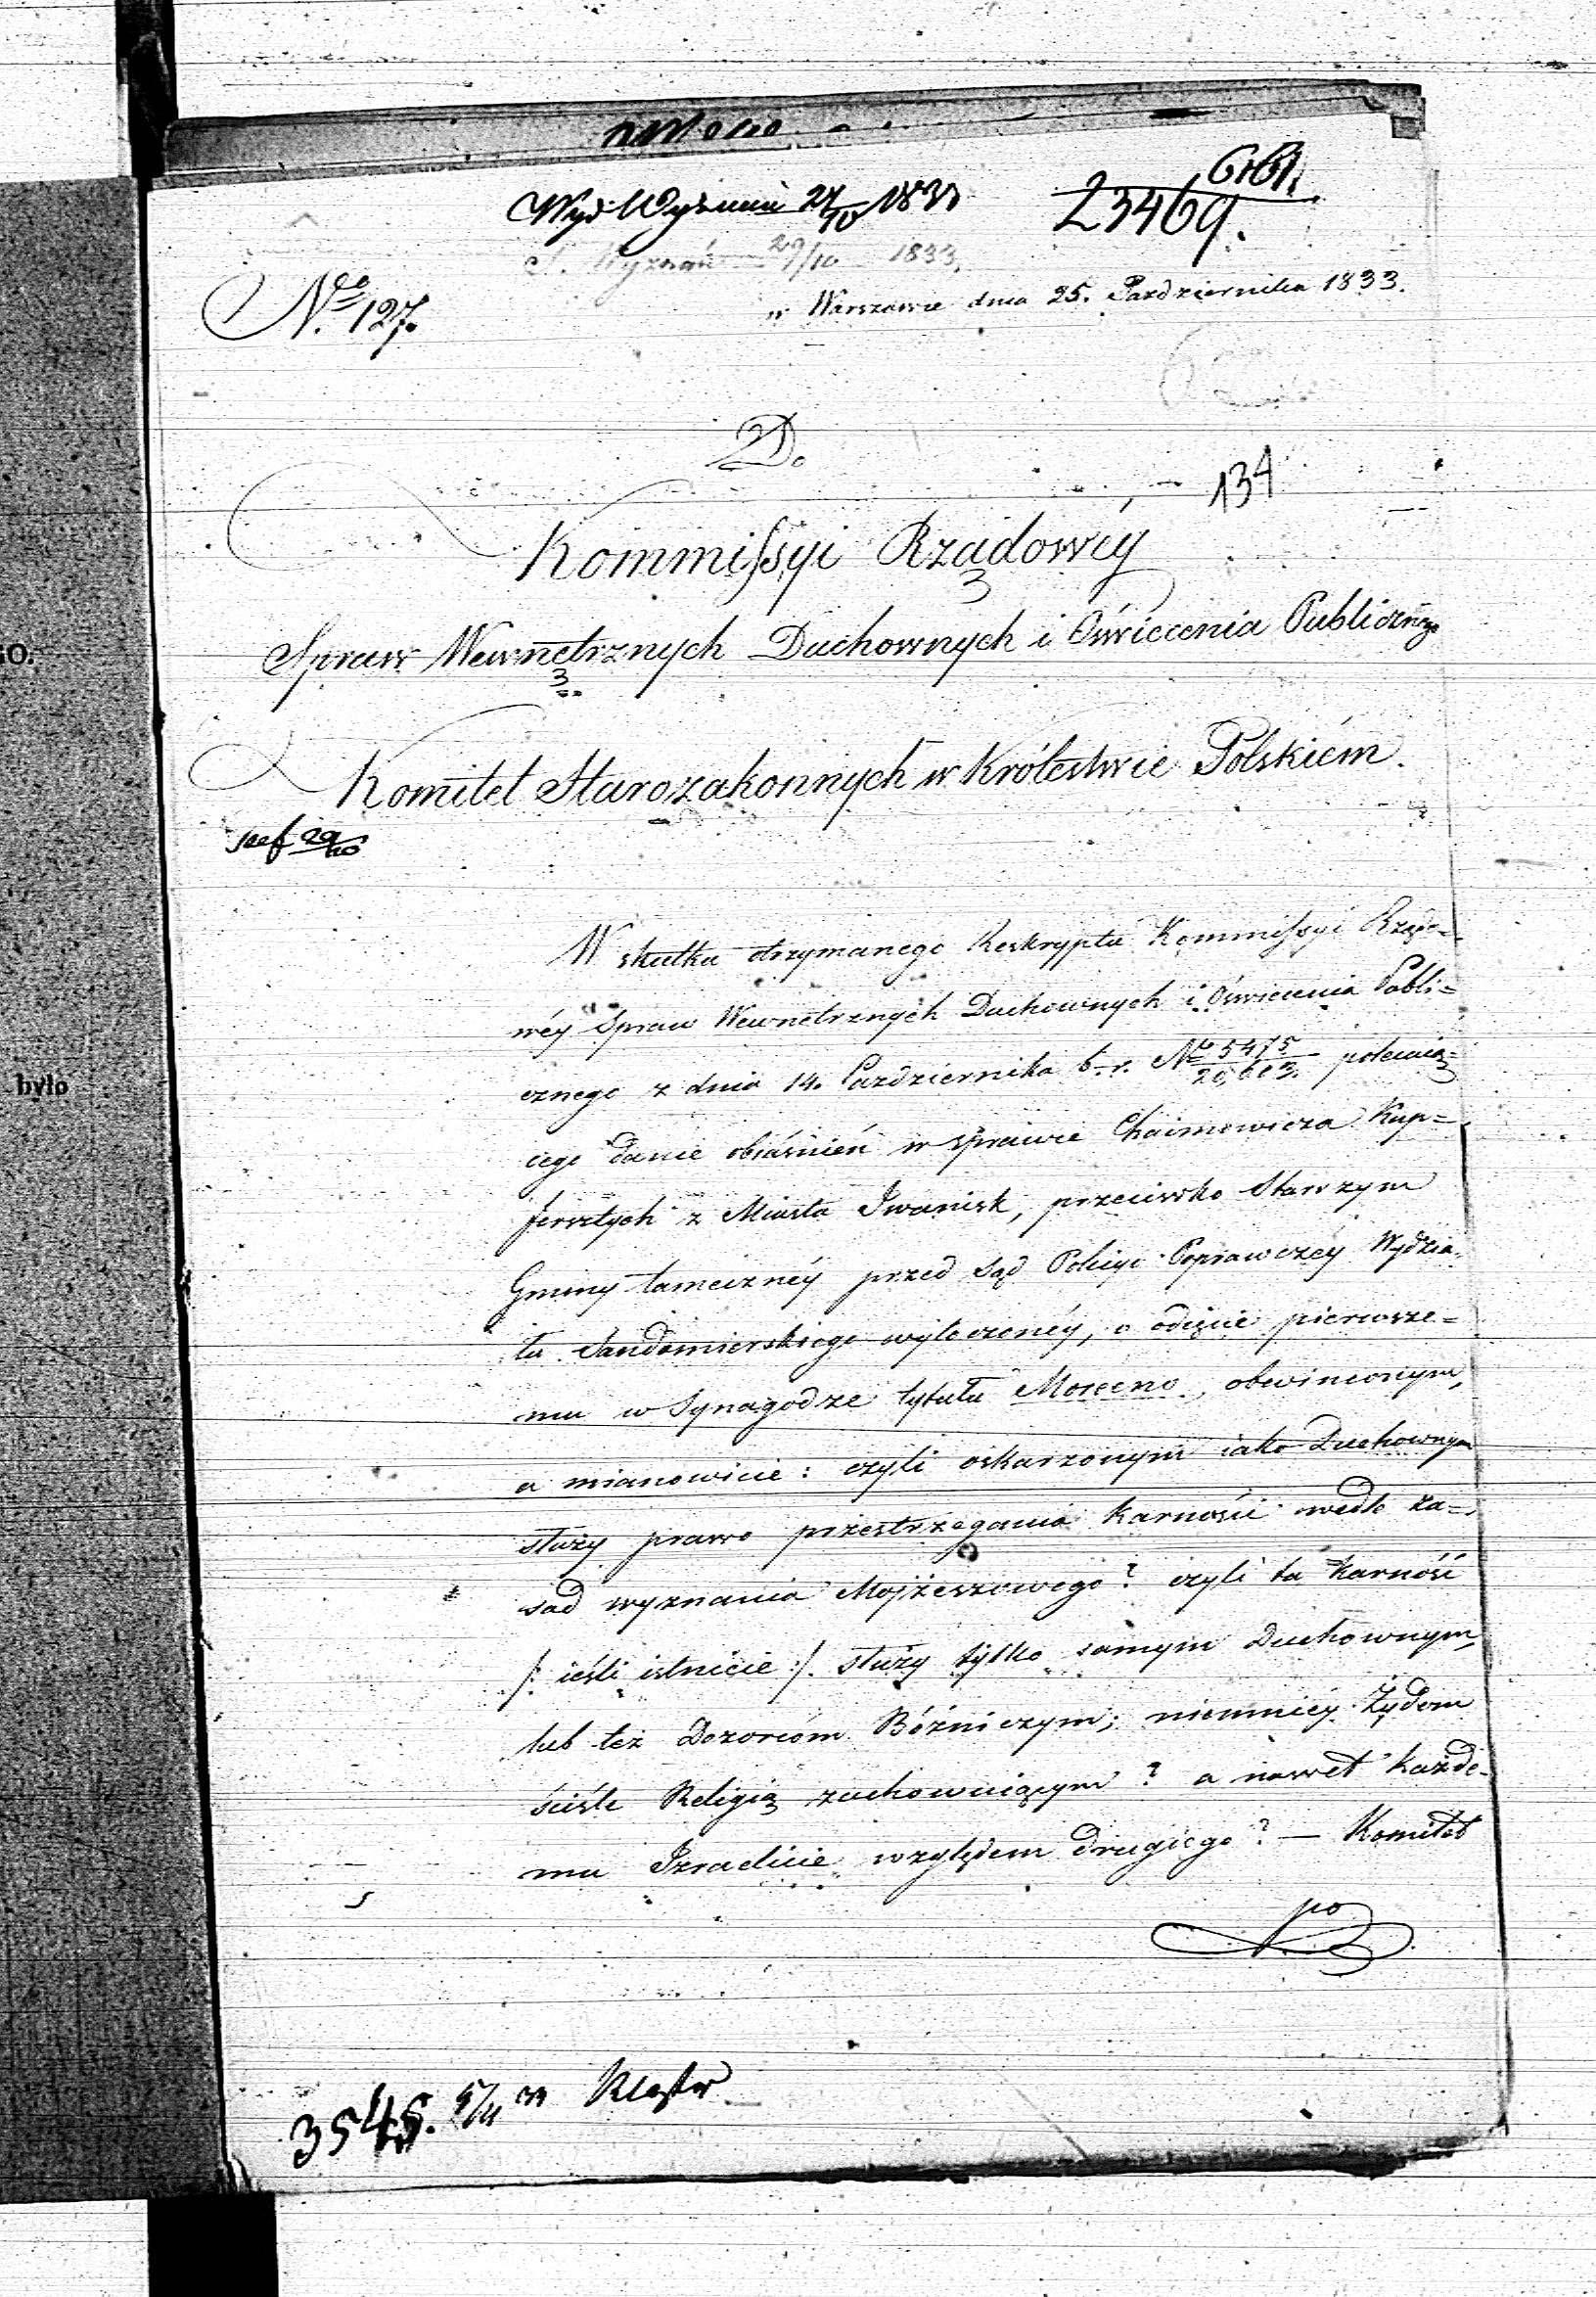 Wyd: Wyznań 27/10 1833
6161.
23469.
S. Wyznań 29/10 1833.
w Warszawie dnia 25. Pazdziernika 1833.
Nro 127.
D.
134
Kommissyi Rządowéy
Spraw Wewnętrznych Duchownych i Oświecenia Publicznego
Komitet Starozakonnych w Królestwie Polskiém.
29/10
W skutku otrzymanego Reskryptu Kommissyi Rządo-
wéy Spraw Wewnętrznych Duchownych i Oświecenia Publi=
cznego z dnia 14. Pazdziernika b. r. Nro 5475/20,603. polecaią=
cego danie obiaśnień w sprawie Chaimowicza Kup=
fersztych z Miasta Iwanisk, przeciwko Starszym
Gminy tameczney przed Sąd Policyi Poprawczéy Wydzia=
łu Sandomierskiego wytoczonéy, o odięcie pierwsze=
mu w Synagodze tytułu Moreno, obwinionym,
a mianowicie: czyli oskarzonym iako Duchownym
służy prawo przestrzegania karności wedle za=
sad wyznania Mojżeszowego? czyli ta karność
/: ieśli istnieie :/ służy tylko samym Duchownym,
lub też Dozorcóm Bóżniczym; niemniéy Żydom
ściśle Religią zachowuiącym? a nawet każde-
mu Izraelicie względem drugiego? — Komitet
po
3545. 5/11 33
było